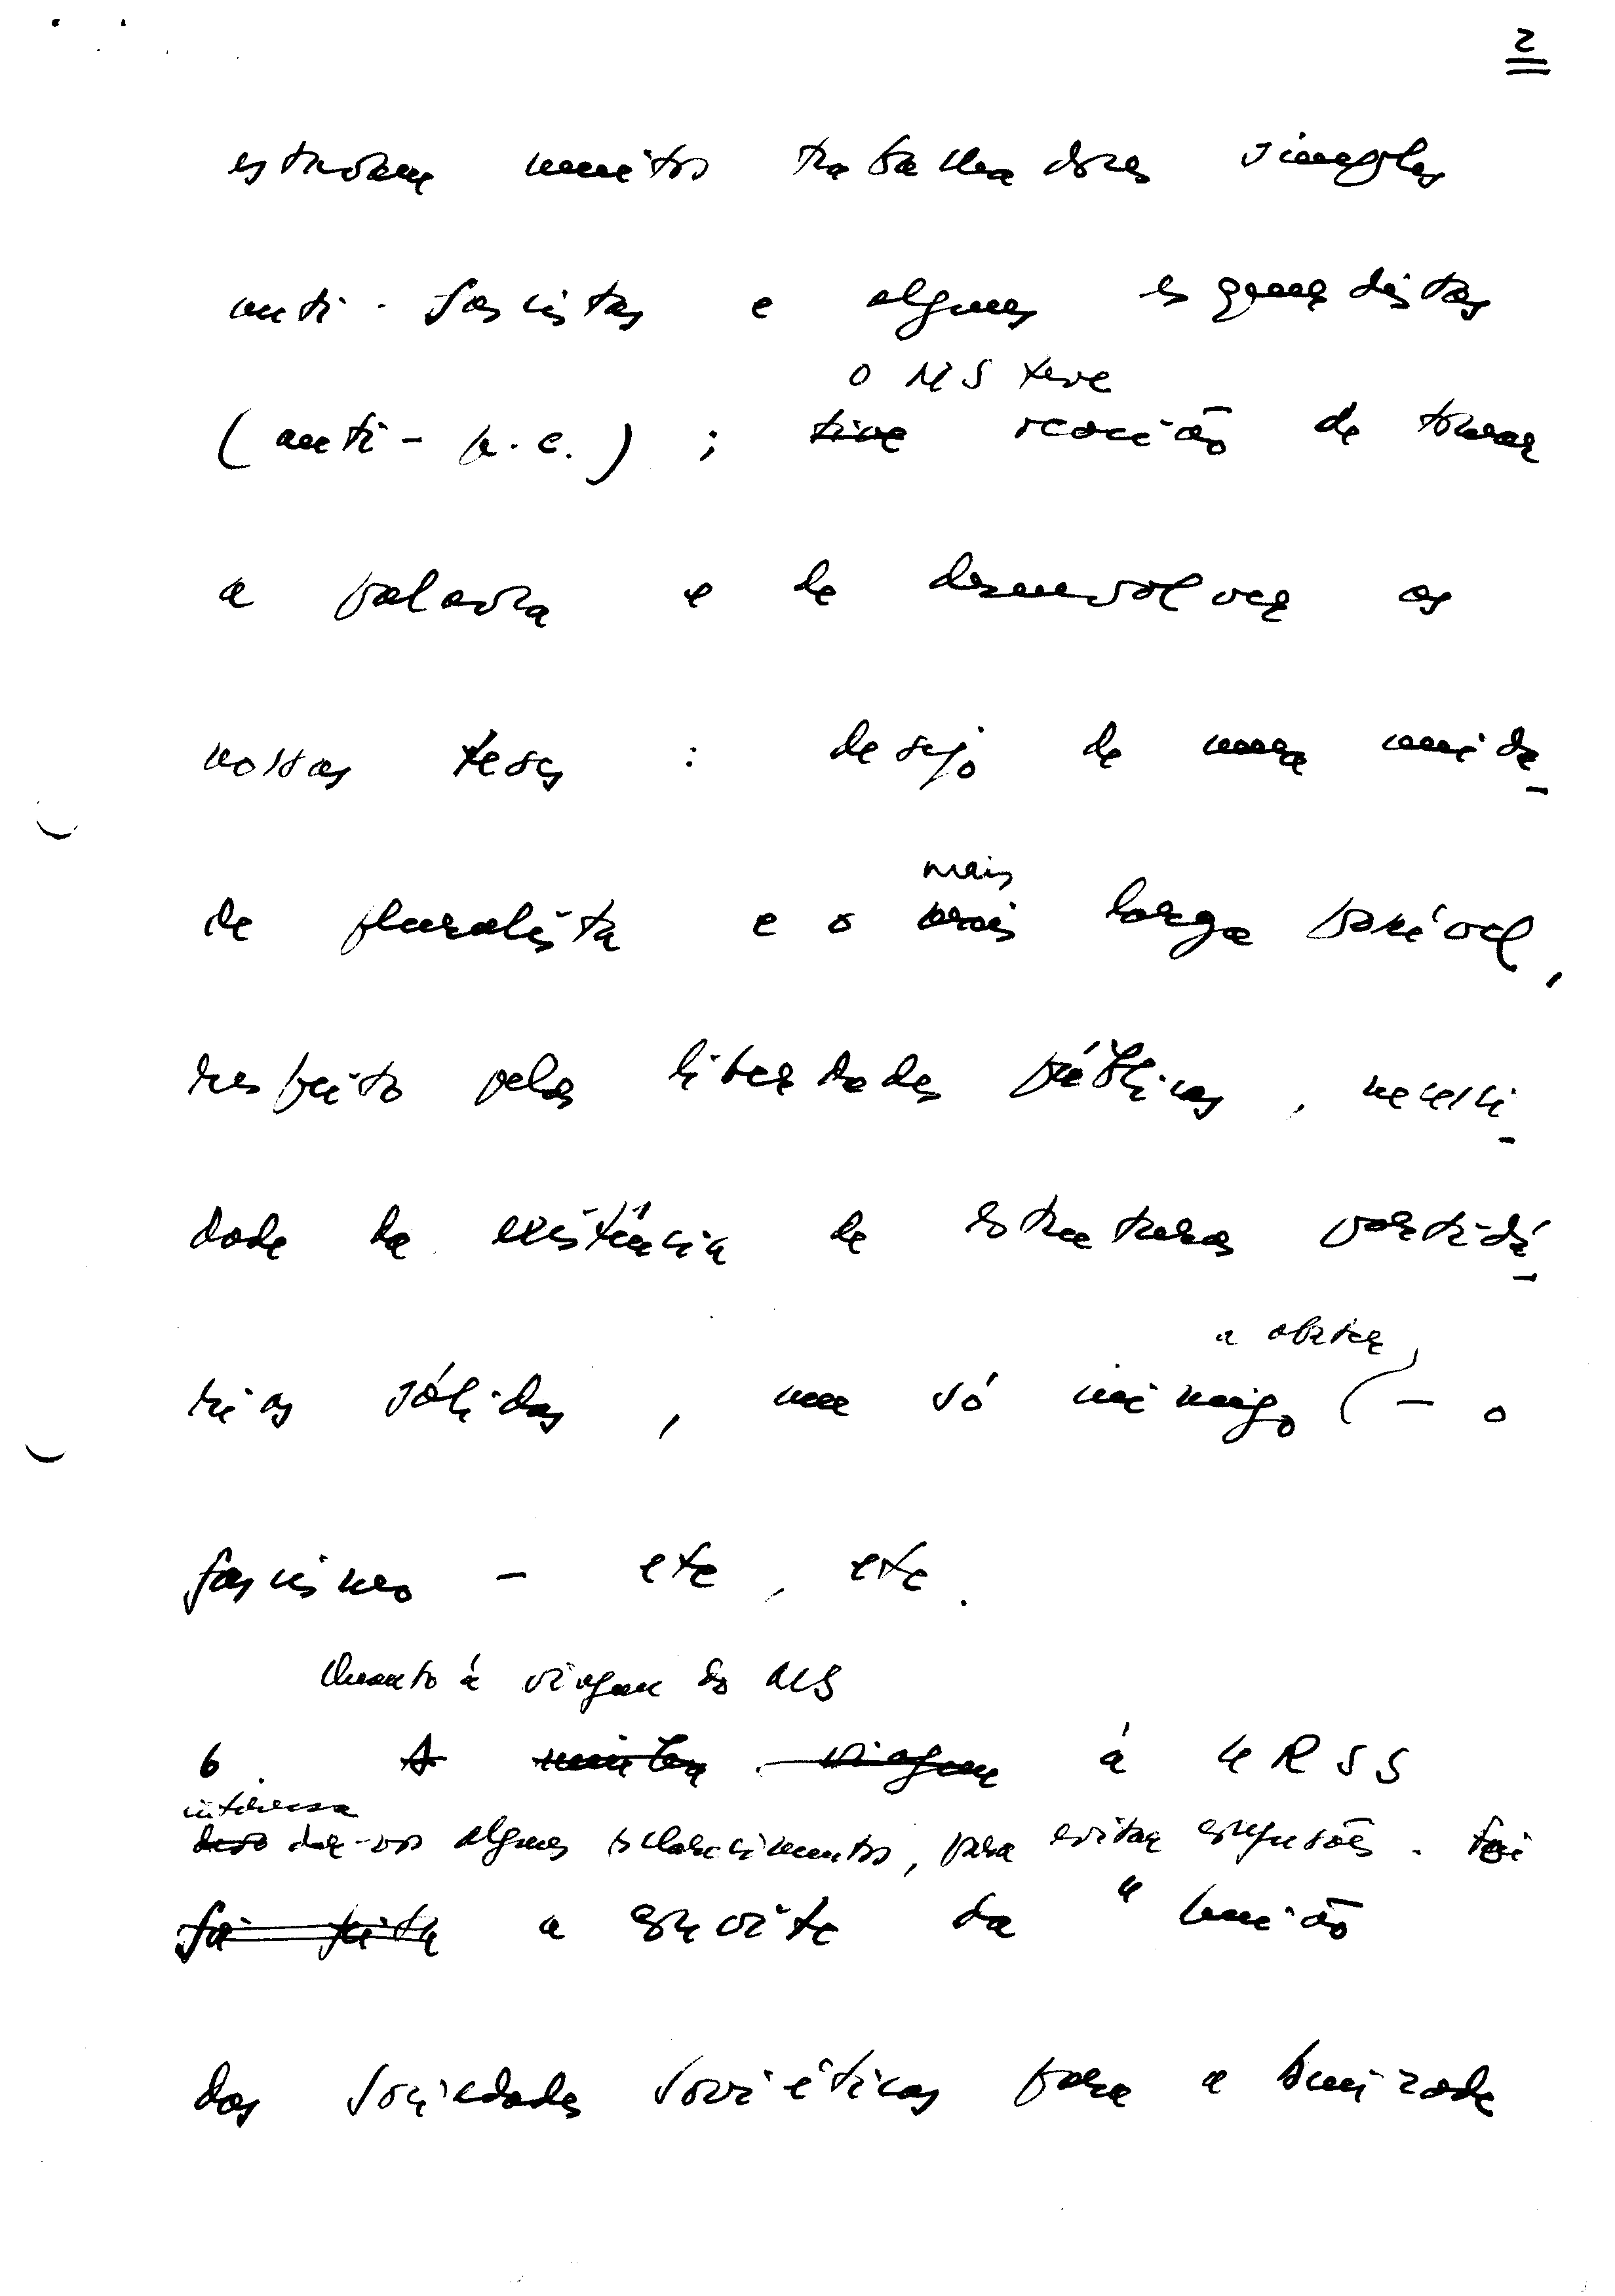 2
estavam muitos trabalhadores simples
anti-fascistas e alguns esquerdistas
o MS teve
(anti-p.c.) ; tive ocasião de tomar
a palavra e de desenvolver as
nossas teses : desejo de uma unida-
mais
de pluralista e o mais larga possível,
respeito pelas liberdades públicas, necessi-
dade da existência de estruturas partidá-
a abater
rias sólidas, um só inimigo ( - o
fascismo - etc, etc.
Quanto à viagem do MS
6. A minha viagem à URSS
interessa
devo dar-vos alguns esclarecimentos, para evitar confusões. Foi
foi feita a convite da "União
das Sociedades Soviéticas para a Amizade